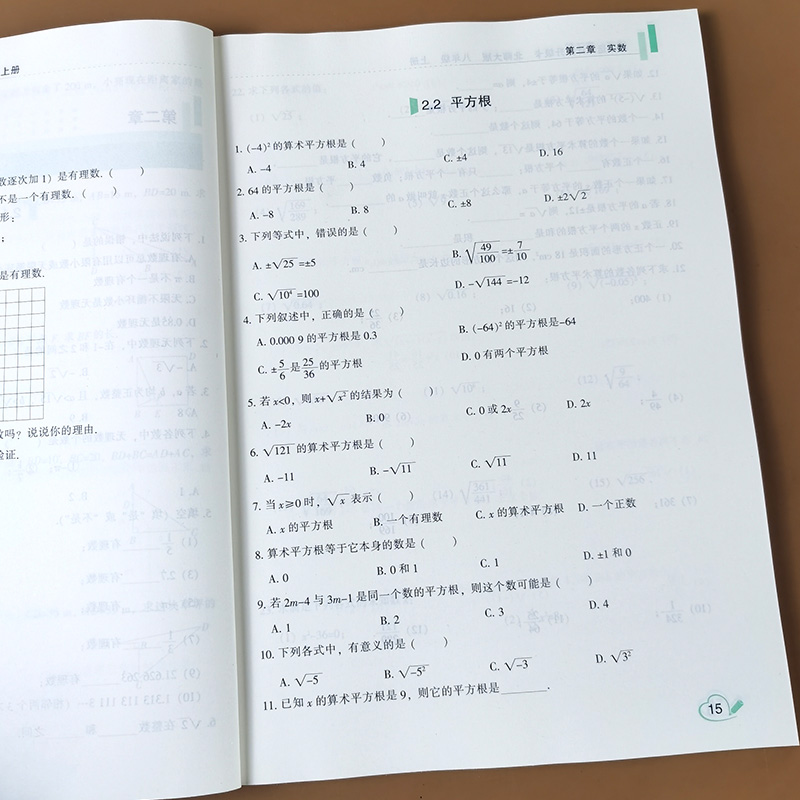 上册
数逐次加 1）是有理数.（　　）
不是一个有理数.（　　）
形：
；
是有理数.
吗？说说你的理由.
验证.
第二章 实数
2.2 平方根
1. (-4)²的算术平方根是（　　）
A. -4　B. 4　C. ±4　D. 16
2. 64 的平方根是（　　）
A. -8　B. 8　C. ±8　D. ±2√2
3. 下列等式中，错误的是（　　）
A. ±√25=±5　B. √(49/100)=±7/10
C. √10⁴=100　D. -√144=-12
4. 下列叙述中，正确的是（　　）
A. 0.000 9 的平方根是 0.3　B. (-64)²的平方根是-64
C. ±5/6是25/36的平方根　D. 0 有两个平方根
5. 若 x<0，则 x+√x² 的结果为（　　）
A. -2x　B. 0　C. 0 或 2x　D. 2x
6. √121 的算术平方根是（　　）
A. -11　B. -√11　C. √11　D. 11
7. 当 x≥0 时，√x 表示（　　）
A. x 的平方根　B. 一个有理数　C. x 的算术平方根　D. 一个正数
8. 算术平方根等于它本身的数是（　　）
A. 0　B. 0 和 1　C. 1　D. ±1 和 0
9. 若 2m-4 与 3m-1 是同一个数的平方根，则这个数可能是（　　）
A. 1　B. 2　C. 3　D. 4
10. 下列各式中，有意义的是（　　）
A. √-5　B. √-5²　C. √-3　D. √3²
11. 已知 x 的算术平方根是 9，则它的平方根是________.
15